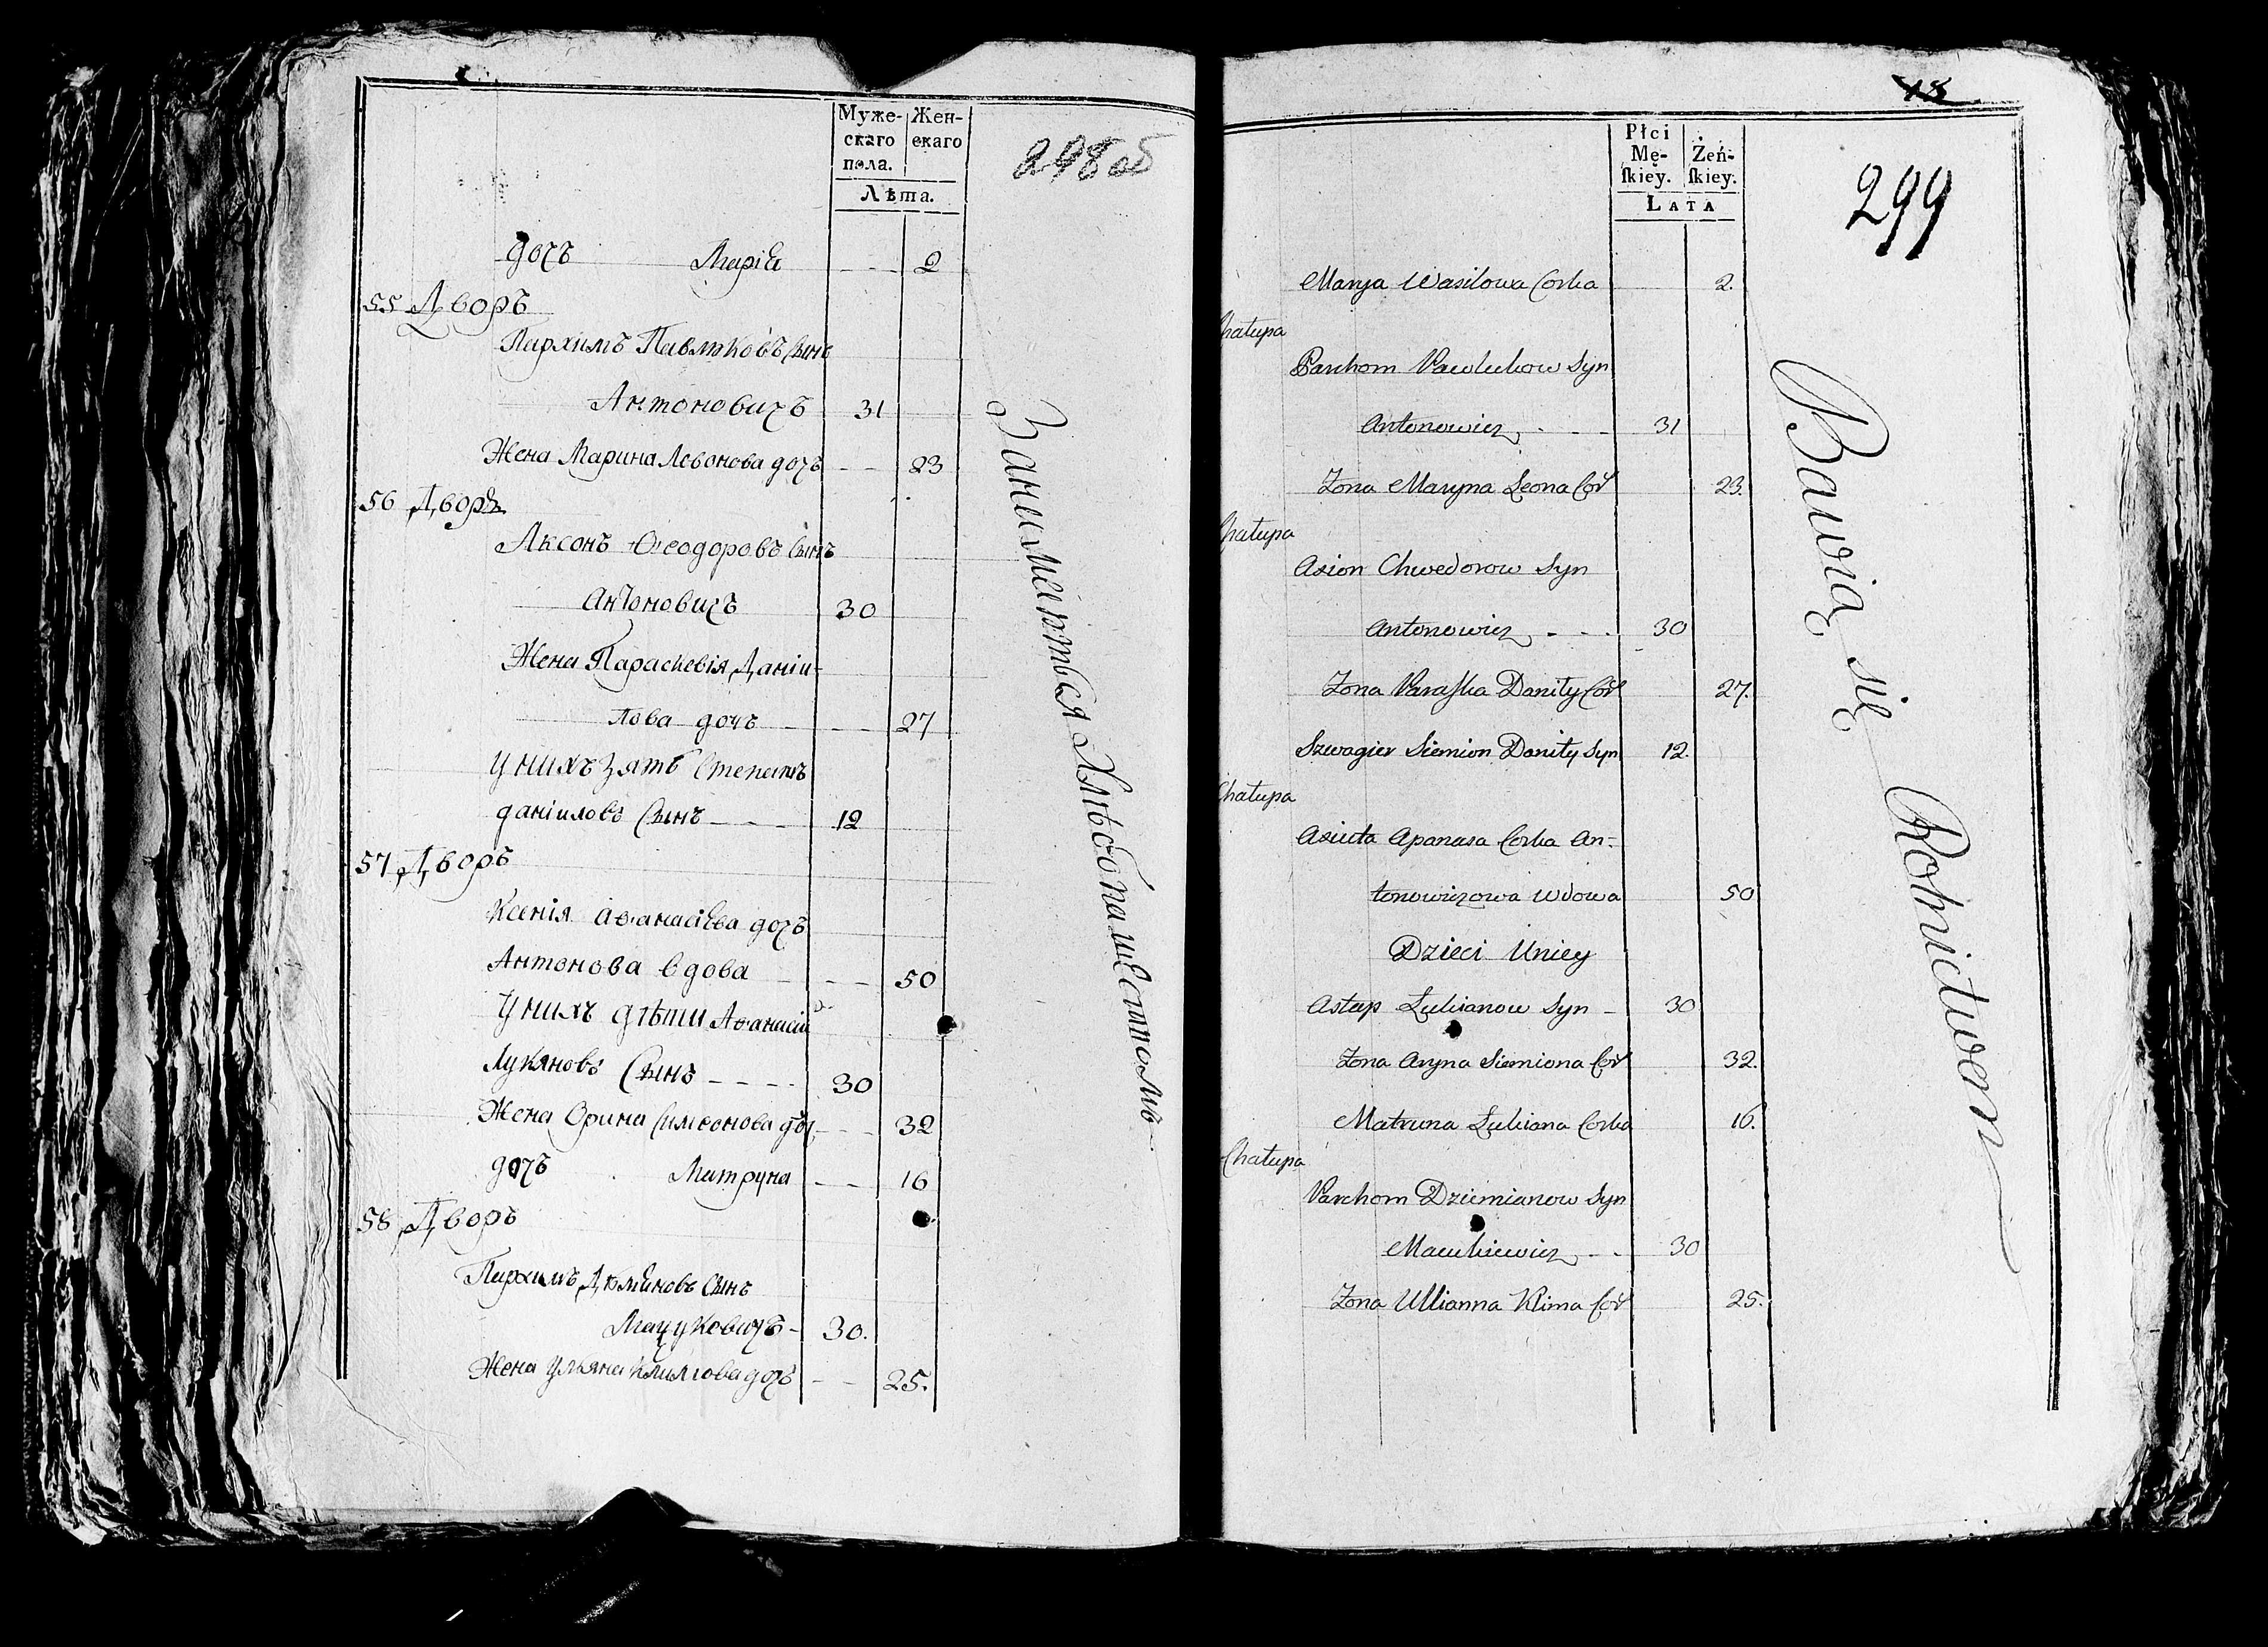 Муже-
скаго
пола.
Жен-
скаго
Лѣта.
298 об
дочь Марія 2
55 Дворъ
Пархимъ Павлюковъ Сынъ
Антоновичъ 31
Жена Марина Левонова дочь 23
56 Дворъ
Аксонъ Ѳеодоровъ Сынъ
Антоновичъ 30
Жена Параскевія Даніи-
лова дочь 27
у нихъ зять Степанъ
даніиловъ Сынъ 12
57 Дворъ
Ксенія Аѳанасіева дочь
Антонова вдова 50
У нихъ дѣти Аѳанасій
Лукяновъ Сынъ 30
Жена Орина Симеонова доч 32
дочь Матруна 16
58 Дворъ
Пархимъ Дюмяновъ Сынъ
Мацуковичъ 30.
Жена Ульяна Климова дочь 25.
Занимаються Хлѣбопашествомъ
18
299
Płci
Mę-
ſkiey.
Żeń-
ſkiey.
LATA
Marya Wasilowa Corka 2.
Chałupa
Parchom Pawlukow Syn
Antonowicz 31
Żona Maryna Leona Cor 23.
Chałupa
Axion Chwedorow Syn
Antonowicz 30
Żona Paraſka Daniły Cor 27.
Szwagier Siemion Daniły Syn 12.
Chałupa
Axiuta Apanasa Corka An-
tonowiczowa Wdowa 50
Dzieci Uniey
Astap Łukianow Syn 30
Żona Aryna Siemiona Cor 32.
Matruna Łukiana Corka 16.
Chałupa
Parchom Dziemianow Syn
Macukiewicz 30
Żona Ullianna Klima Cor 25.
Bawią się Rolnictwem